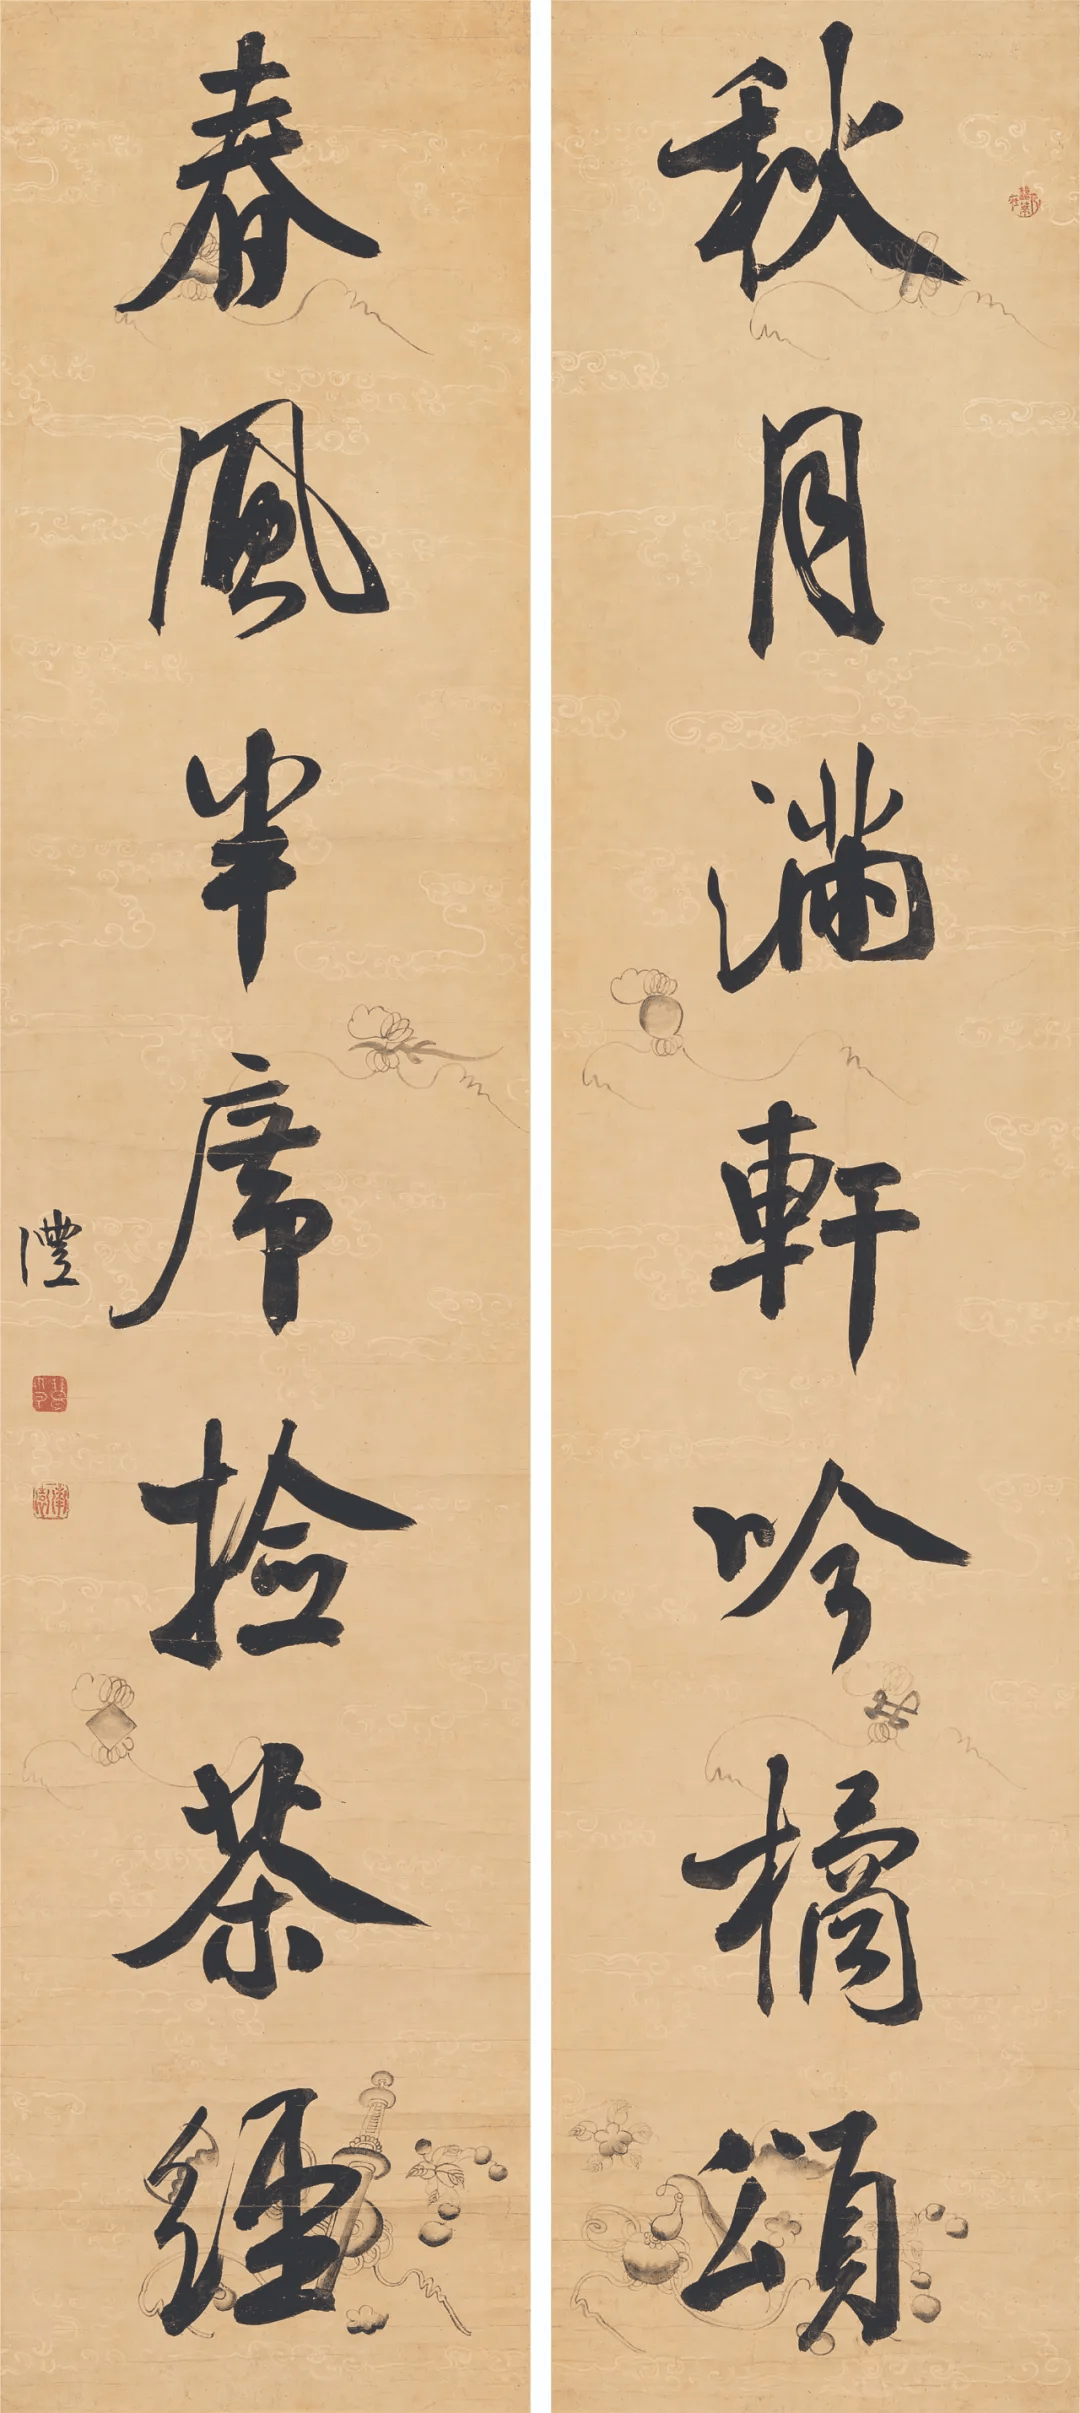 秋月滿軒吟橘頌
春風半席撿茶經
澧